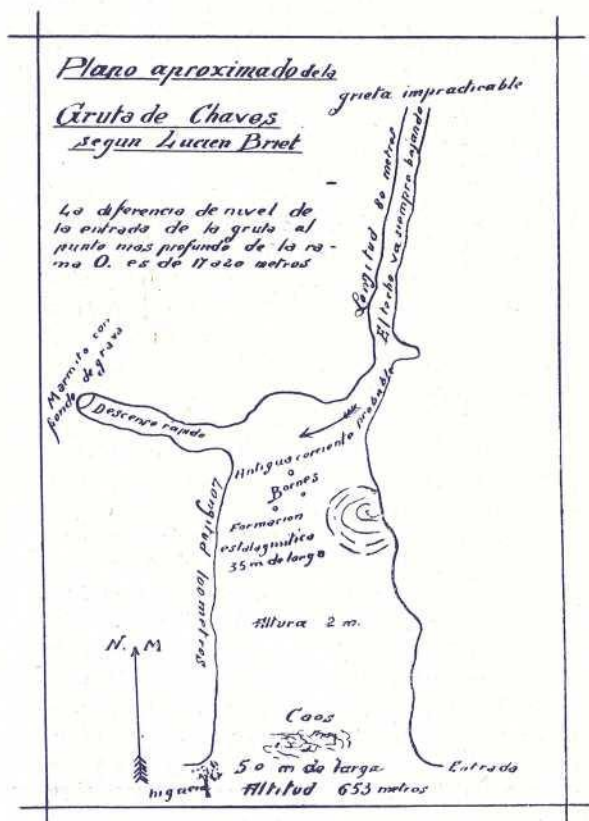 Plano aproximado de la
Gruta de Chaves
segun Lucien Briet
grieta impracticable
La diferencia de nivel de
la entrada de la gruta al
punto mas profundo de la ra-
ma O. es de 17 a 20 metros
Longitud 80 metros
El techo va siempre bajando
Marmita con
fondo de grava
Descenso rapido
Antigua corriente probable
Bornes
Formacion
estalagmitica
35 m de largo
Longitud 100 metros
Altura 2 m.
N. M
Caos
50 m de larga
Entrada
higuera
Altitud 653 metros